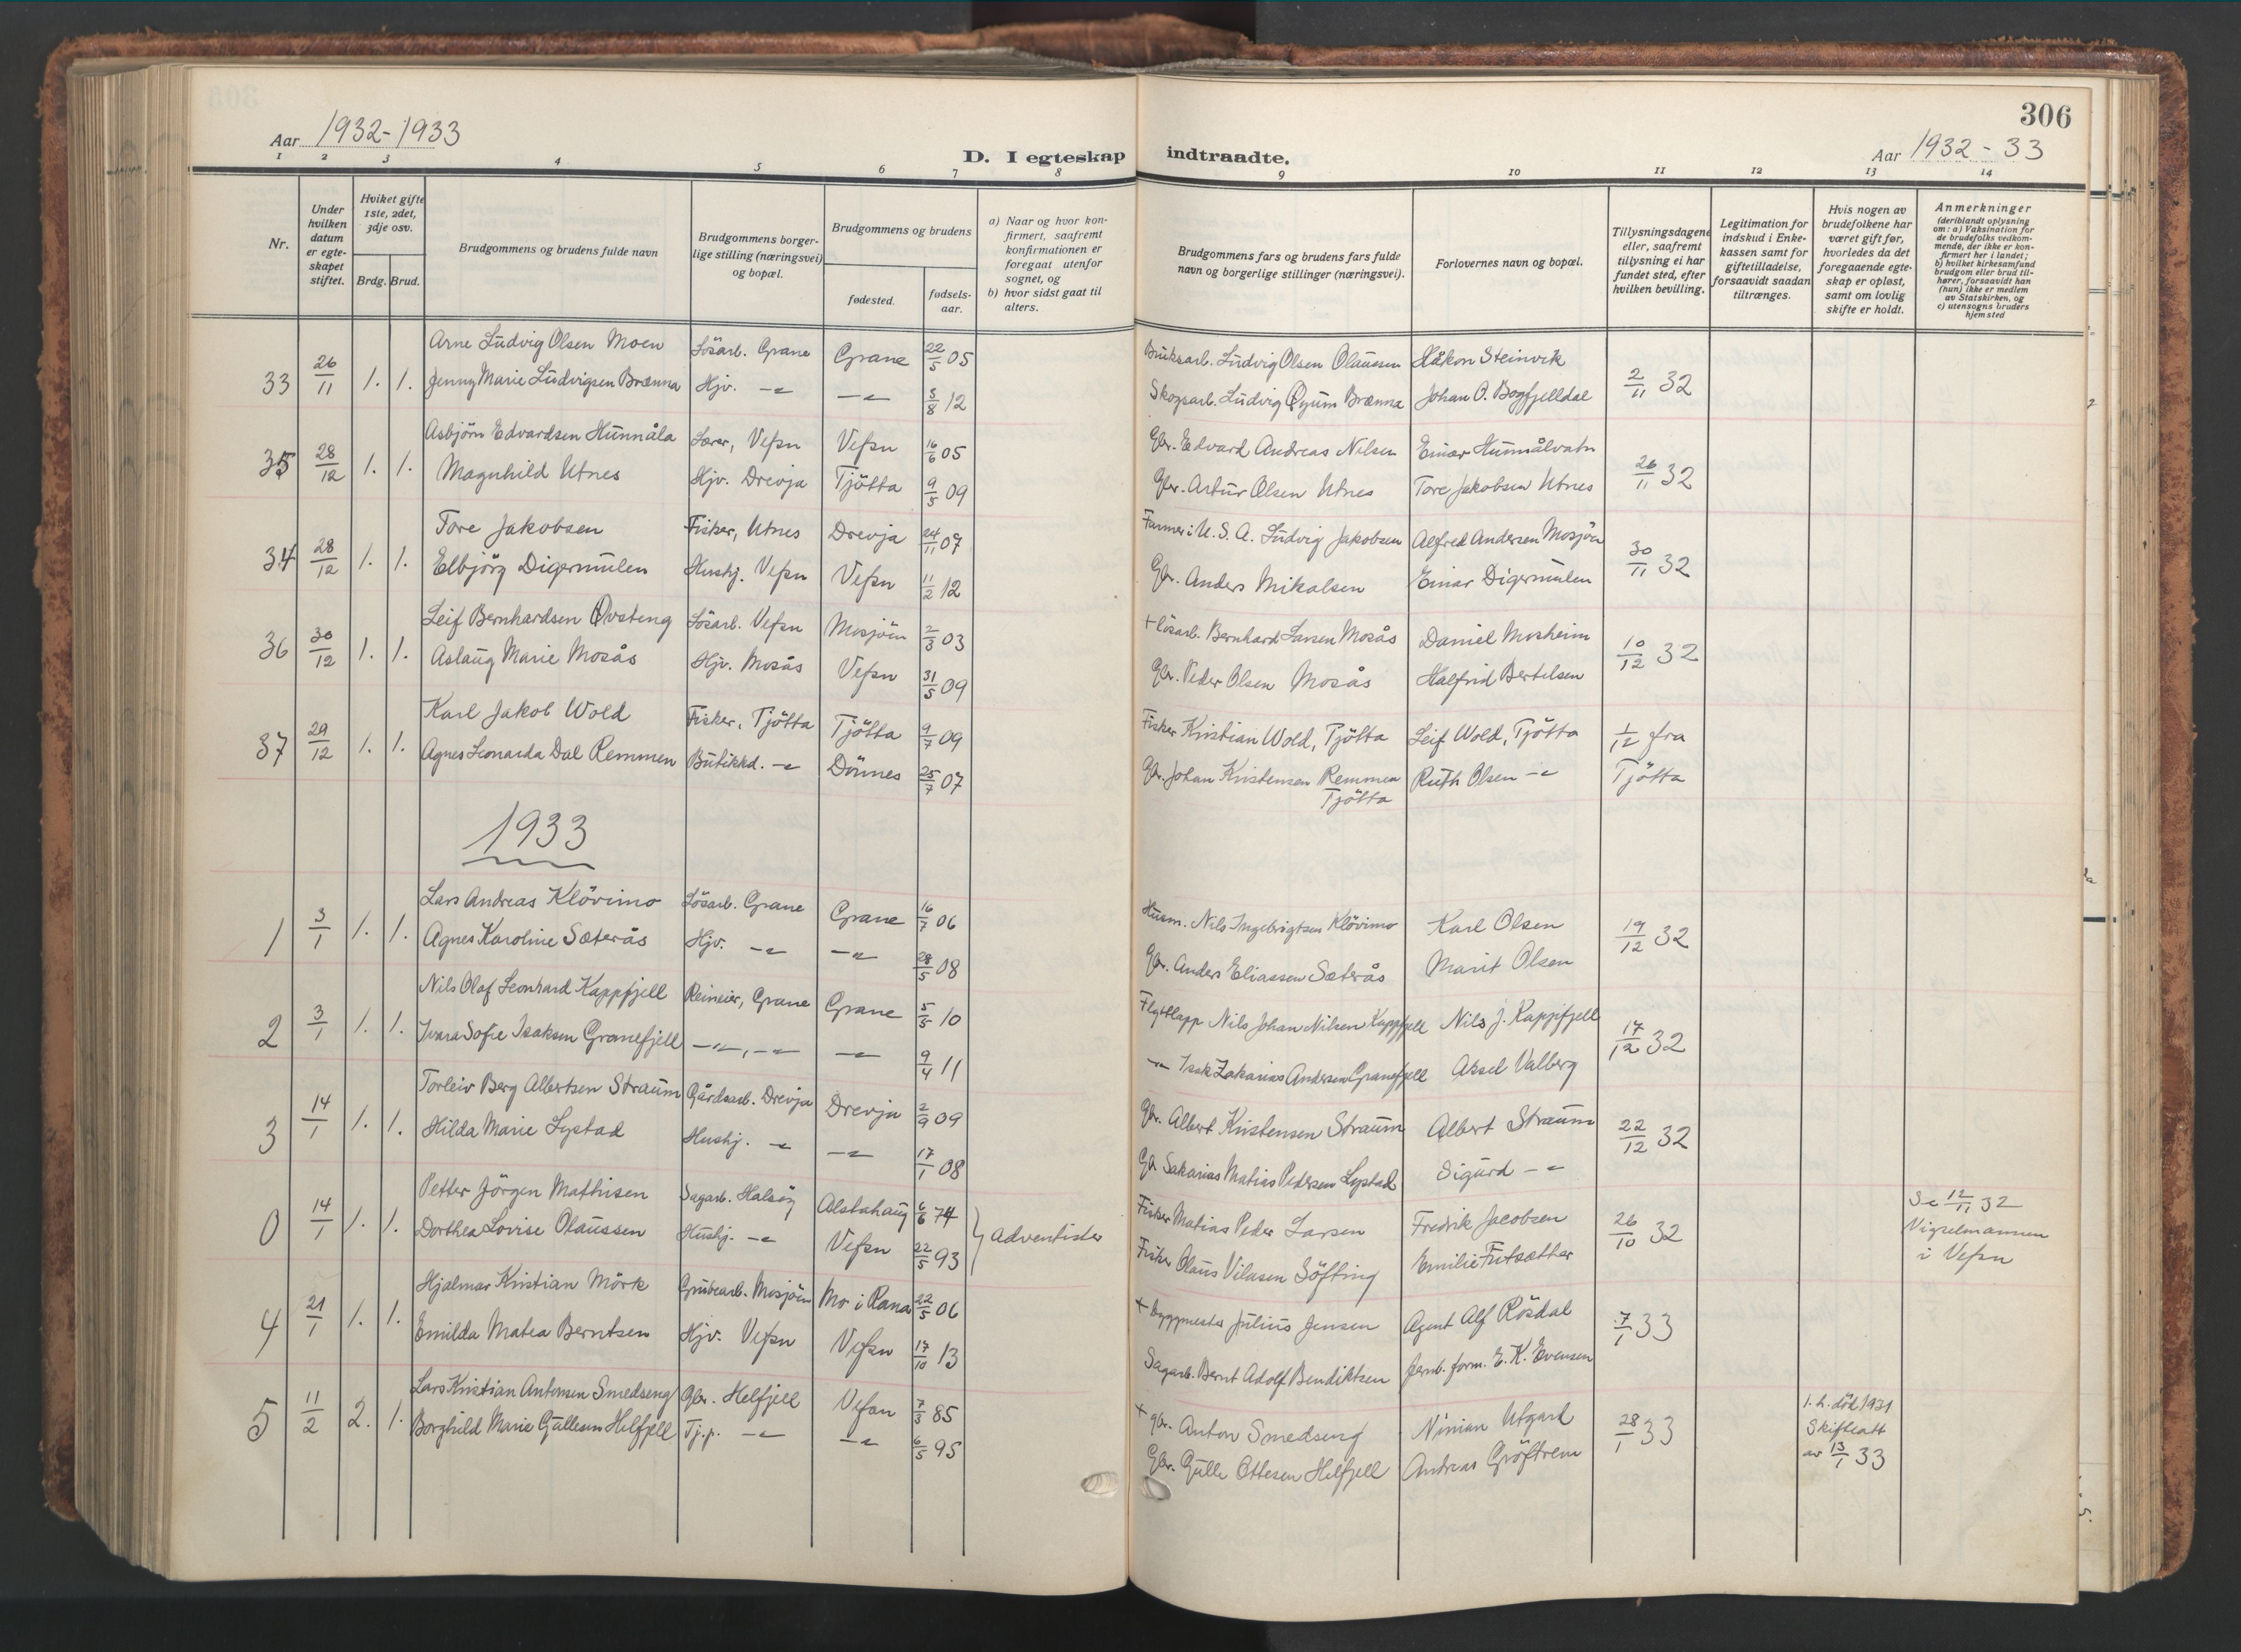 306
Aar 1932-1933
D. I egteskap indtraadte.
Aar 1932-33
1 2 3 4 5 6 7 8 9 10 11 12 13 14
Nr.
Under hvilken datum er egteskapet stiftet.
Hviket gifte 1ste, 2det, 3dje osv.
Brdg. Brud.
Brudgommens og brudens fulde navn
Brudgommens borgerlige stilling (næringsvei) og bopæl.
Brudgommens og brudens
fødested.
fødselsaar.
a) Naar og hvor konfirmert, saafremt konfirmationen er foregaat utenfor sognet, og
b) hvor sidst gaat til alters.
Brudgommens fars og brudens fars fulde navn og borgerlige stillinger (næringsvei).
Forlovernes navn og bopæl.
Tillysningsdagene eller, saafremt tillysning ei har fundet sted, efter hvilken bevilling.
Legitimation for indskud i Enkekassen samt for giftetilladelse, forsaavidt saadan tiltrænges.
Hvis nogen av brudefolkene har været gift før, hvorledes da det foregaaende egteskap er opløst, samt om lovlig skifte er holdt.
Anmerkninger
(deriblandt oplysning om: a) Vaksination for de brudefolks vedkommende, der ikke er konfirmert her i landet; b) hvilket kirkesamfund brudgom eller brud tilhører, forsaavidt han (hun) ikke er medlem av Statskirken, og c) utensogns bruders hjemsted
33 26/11 1. 1. Arne Ludvig Olsen Moen Lösarb. Grane Grane 22/5 05 Bruksarb. Ludvig Olsen Olaussen Håkon Steinvik 2/11 32
Jenny Marie Ludvigsen Brænna Hjv. -"- -"- 3/8 12 Skogsarb. Ludvig Øyum Brænna Johan O. Bogfjelldal
35 28/12 1. 1. Asbjörn Edvardsen Hunnåla Lærer, Vefsn Vefsn 16/6 05 Gbr. Edvard Andreas Nilsen Einar Hunnålvatn 26/11 32
Magnhild Utnes Hjv. Drevja Tjötta 9/5 09 Gbr. Artur Olsen Utnes Tore Jakobsen Utnes
34 28/12 1. 1. Tore Jakobsen Fisker, Utnes Drevja 24/11 07 Farmer i U.S.A. Ludvig Jakobsen Alfred Andersen Mosjöen 30/11 32
Elbjörg Digermulen Hushj. Vefsn Vefsn 11/2 12 Gbr. Anders Mikalsen Einar Digermulen
36 30/12 1. 1. Leif Bernhardsen Øvsteng Lösarb. Vefsn Mosjöen 2/3 03 + lösarb. Bernhard Larsen Mosås Daniel Mosheim 10/12 32
Aslaug Marie Mosås Hjv. Mosås Vefsn 31/5 09 Gbr. Peder Olsen Mosås Halfrid Bertelsen
37 29/12 1. 1. Karl Jakob Wold Fisker, Tjötta Tjötta 9/7 09 Fisker Kristian Wold, Tjötta Leif Wold, Tjötta 1/12 fra
Agnes Leonarda Dal Remmen Butikkd. -"- Dönnes 25/7 07 Gbr. Johan Kristensen Remmen Ruth Olsen -"- Tjötta
Tjötta
1933
1 3/1 1. 1. Lars Andreas Klövimo Lösarb. Grane Grane 16/7 06 Husm. Nils Ingebrigtsen Klövimo Karl Olsen 19/12 32
Agnes Karoline Sæterås Hjv. -"- -"- 28/5 08 Gbr. Anders Eliassen Sæterås Marit Olsen
2 3/1 1. 1. Nils Olaf Leonhard Kappfjell Reineier, Grane Grane 5/5 10 Flyttlapp Nils Johan Nilsen Kappfjell Nils J. Kappfjell 17/12 32
Ivara Sofie Isaksen Granefjell -"-, -"- -"- 9/4 11 -"- Isak Zakarias Andersen Granefjell Aksel Valberg
3 14/1 1. 1. Torleiv Berg Albertsen Straum Gårdsarb. Drevja Drevja 2/9 09 Gbr. Albert Kristensen Straum Albert Straum 22/12 32
Hilda Marie Lystad Hushj. -"- -"- 17/1 08 Gbr Sakarias Matias Pedersen Lystad Sigurd -"-
0 14/1 1. 1. Petter Jörgen Mathisen Sagarb. Halsöy Alstahaug 6/6 74 Adventister Fisker Matias Peder Larsen Fredrik Jacobsen 26/10 32 Se 12/11 32
Dorthea Lovise Olaussen Hushj. -"- Vefsn 22/5 93 Fisker Olaus Vilasen Söfting Emilie Fritsætter Vigselmannen
i Vefsn
4 21/1 1. 1. Hjalmar Kristian Mörk Grubearb. Mosjöen Mo i Rana 22/5 06 + byggmester Julius Jensen Agent Alf Rösdal 7/1 33
Emilda Matea Berntsen Hjv. Vefsn Vefsn 17/10 13 Sagarb. Bernt Adolf Bendiktsen Jernb. form. E. K. Evensen
5 11/2 2. 1. Lars Kristian Antonsen Smedseng Gbr. Helfjell Vefsn 7/3 85 + gbr. Anton Smedseng Ninian Utgard 28/1 33 1. h. död 1931
Borghild Marie Gullesen Helfjell Tj.p. -"- -"- 6/5 95 Gbr. Gulle Ottesen Helfjell Andreas Gröftrem Skifteatt
av 13/1 33